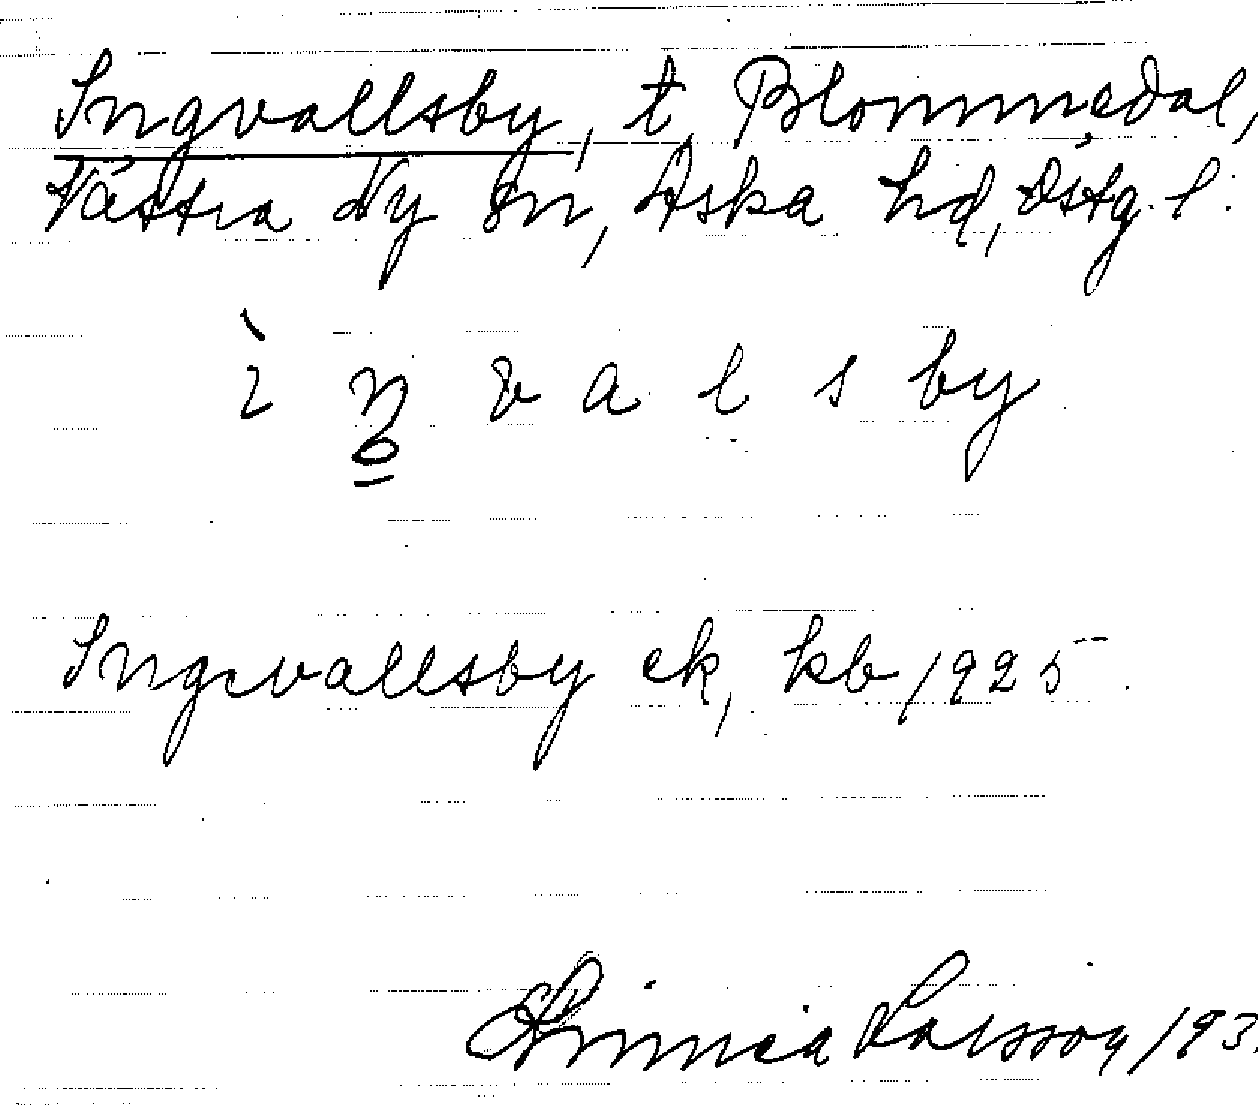 Ingvallsby, t. Blommedal,
Västra Ny sn, Aska hd, Östg. l.
ì ŋ v a l s by
Ingevallsby ek, kb 1925
Linnea Larsson 193